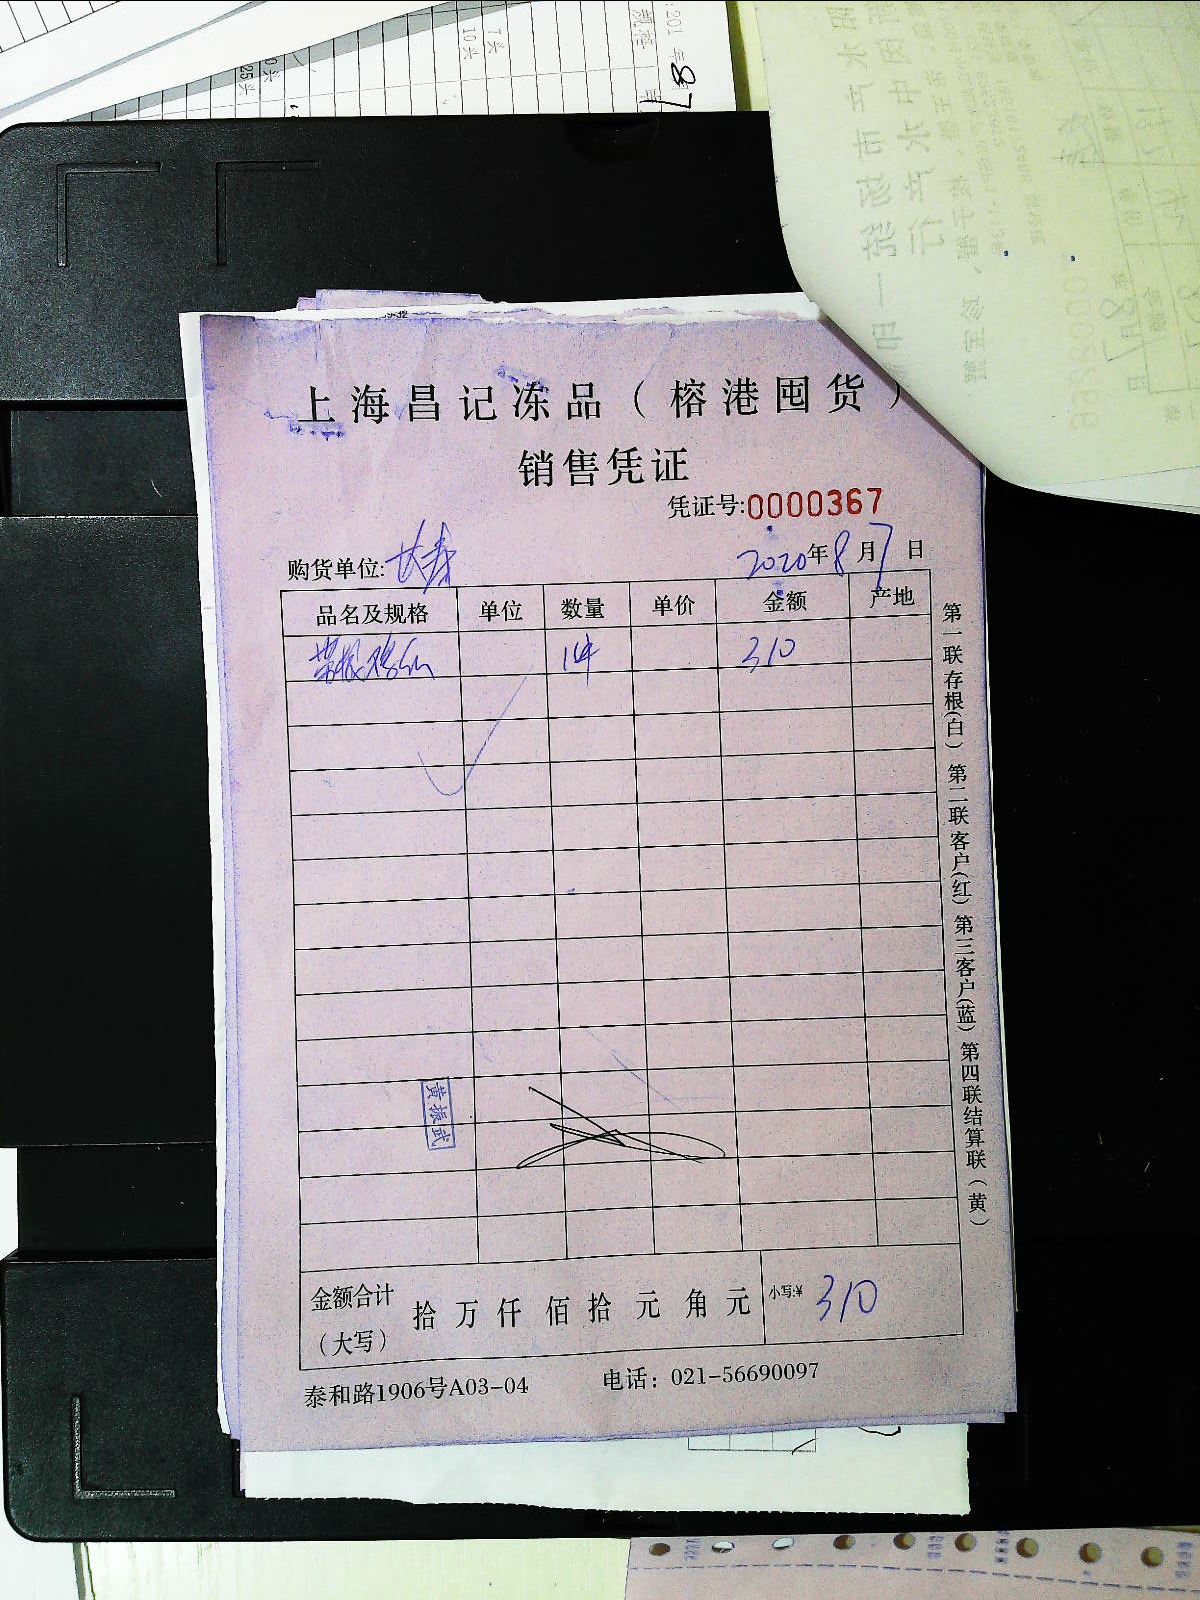 上海昌记冻品（榕港囤货）
销售凭证
凭证号:0000367
购货单位:长寿 2020年8月7日
品名及规格 单位 数量 单价 金额 产地
1件 310
黄振武
金额合计（大写） 拾 万 仟 佰 拾 元 角 元 小写:¥ 310
泰和路1906号A03-04 电话：021-56690097
第一联存根(白) 第二联客户(红) 第三客户(蓝) 第四联结算联（黄）
7头
10头
25头